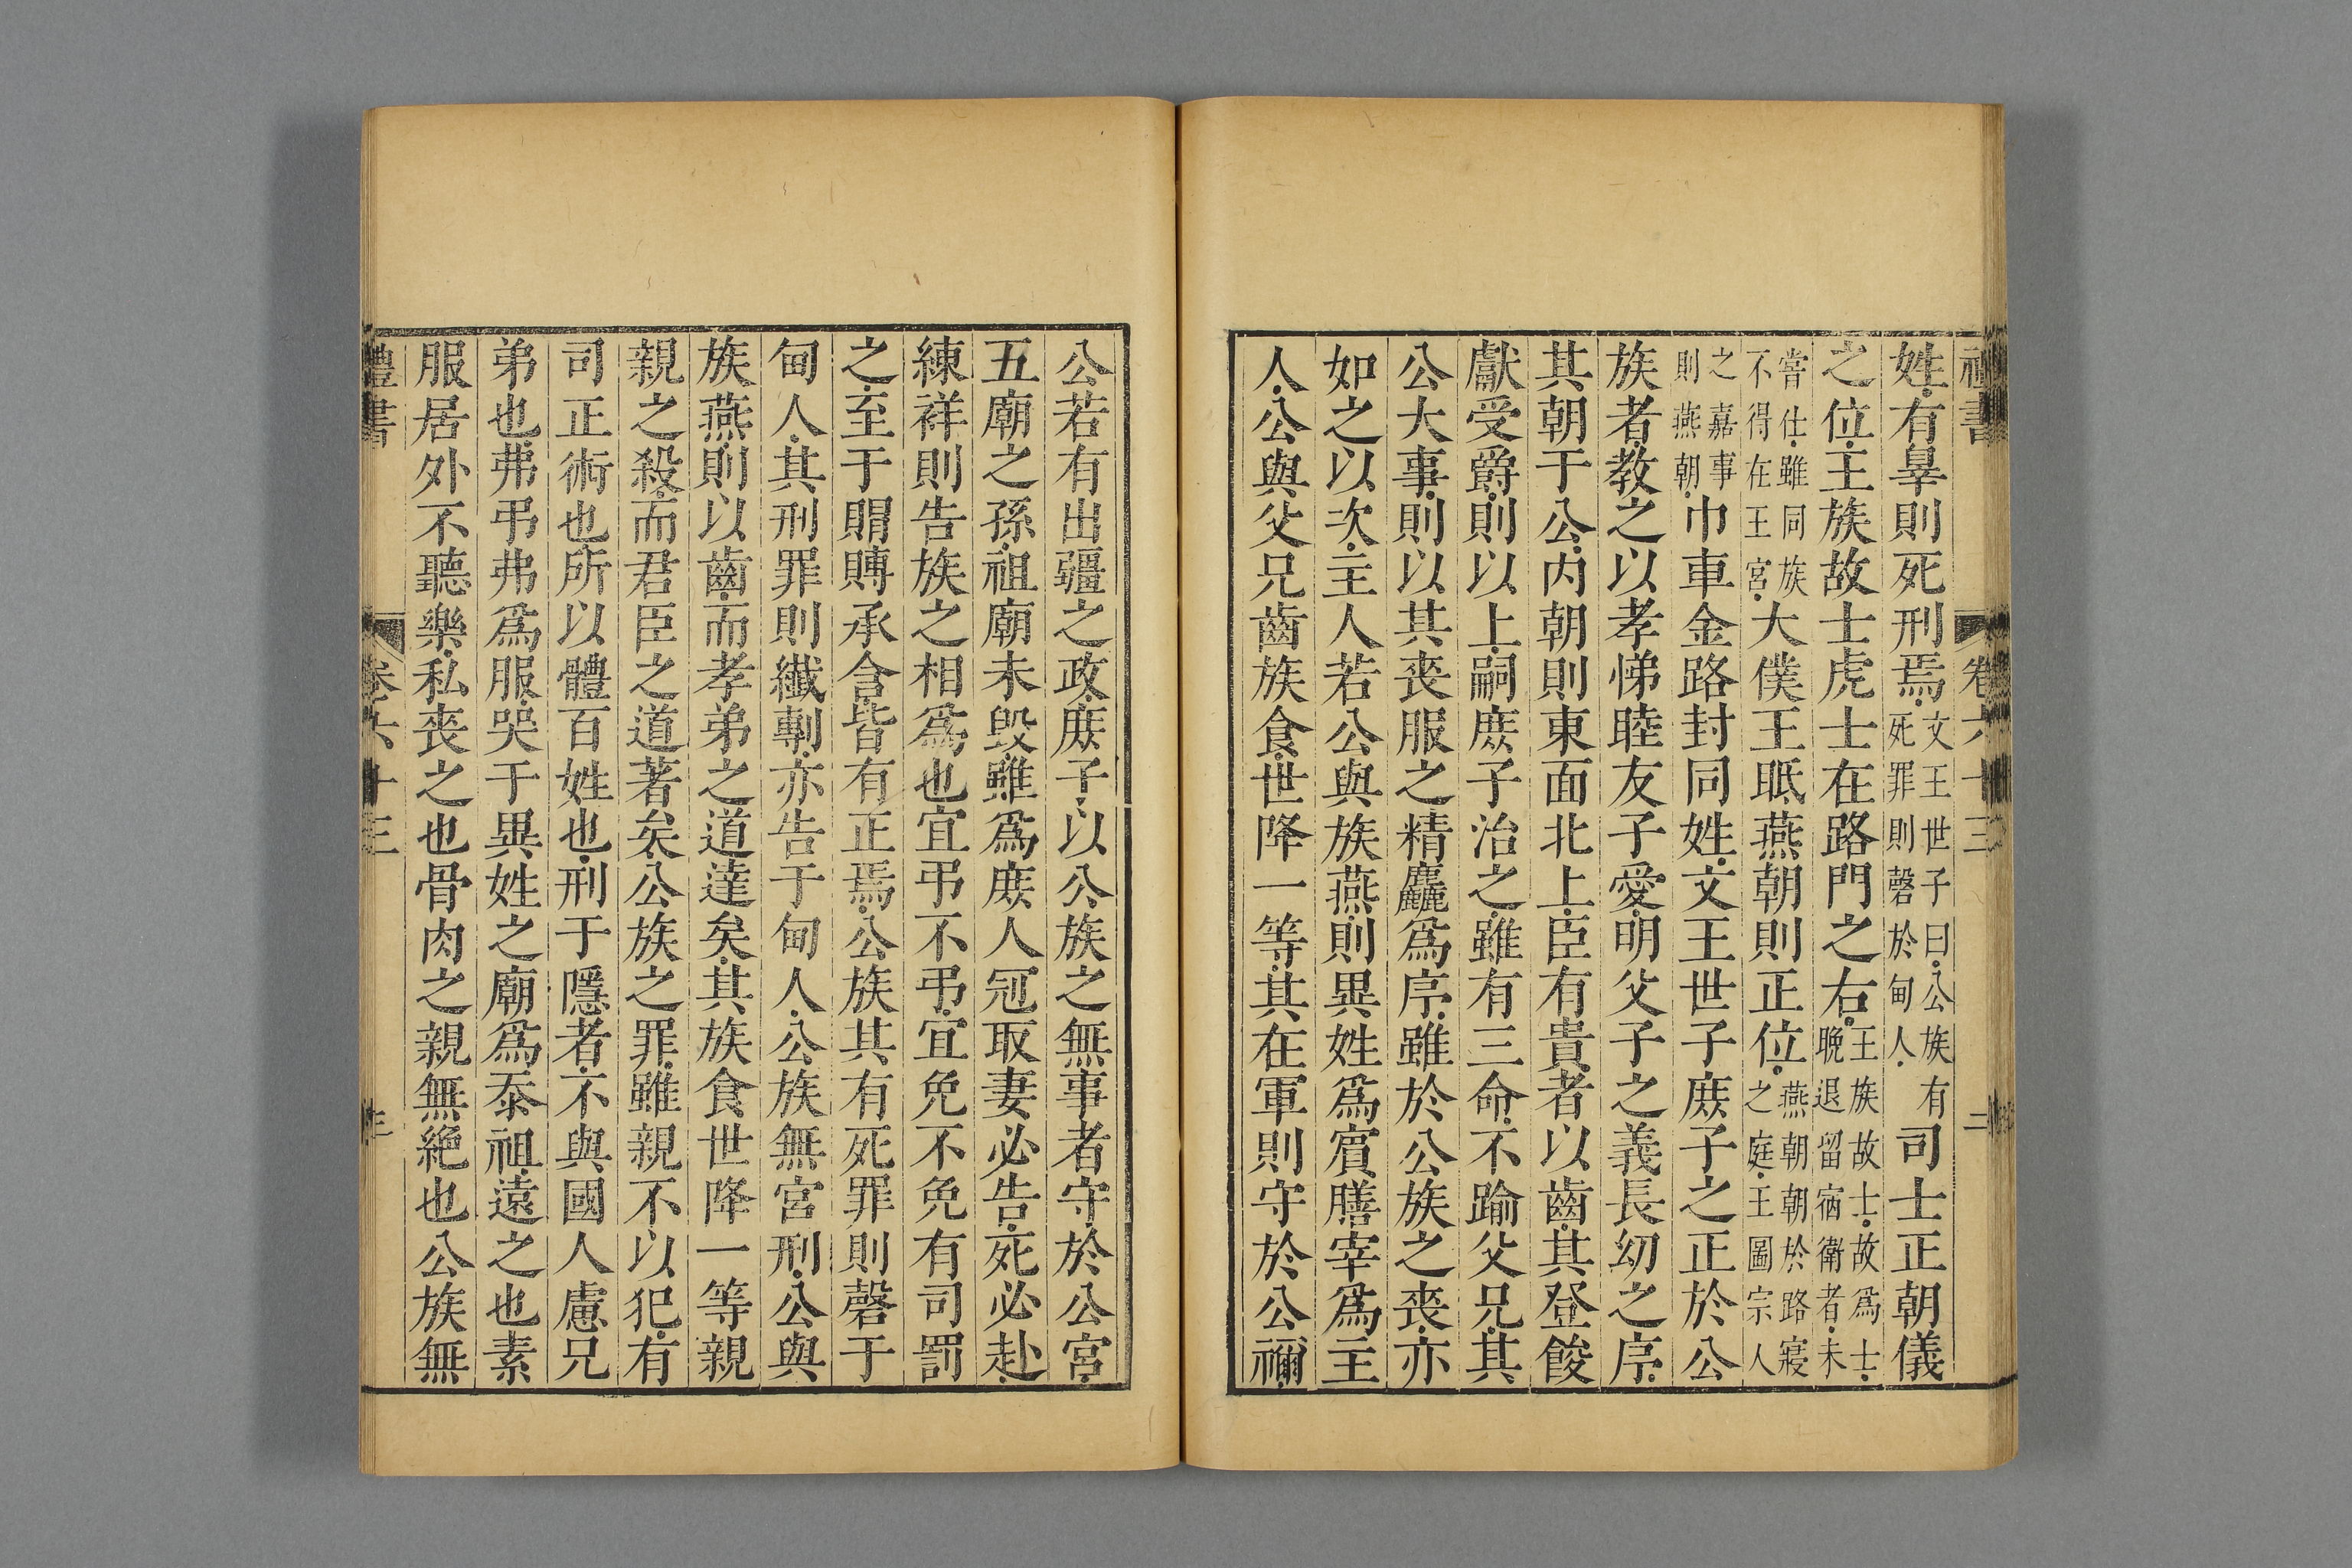 禮書 卷六十三 二
姓有辠則死刑焉文王世子曰公族有死罪則磬於甸人司士正朝儀
之位王族故士虎士在路門之右王族故士故爲士晚退留宿衛者未
嘗仕雖同族不得在王宮大僕王眡燕朝則正位燕朝朝於路寢之庭王圖宗人
之嘉事則燕朝巾車金路封同姓文王世子庶子之正於公
族者教之以孝悌睦友子愛明父子之義長幼之序
其朝于公內朝則東面北上臣有貴者以齒其登餕
獻受爵則以上嗣庶子治之雖有三命不踰父兄其
公大事則以其喪服之精麤爲序雖於公族之喪亦
如之以次主人若公與族燕則異姓爲賓膳宰爲主
人公與父兄齒族食世降一等其在軍則守於公禰
公若有出疆之政庶子以公族之無事者守於公宮
五廟之孫祖廟未毀雖爲庶人冠取妻必告死必赴
練祥則告族之相爲也宜弔不弔宜免不免有司罰
之至于賵賻承含皆有正焉公族其有死罪則磬于
甸人其刑罪則纖剸亦告于甸人公族無宮刑公與
族燕則以齒而孝弟之道達矣其族食世降一等親
親之殺而君臣之道著矣公族之罪雖親不以犯有
司正術也所以體百姓也刑于隱者不與國人慮兄
弟也弗弔弗爲服哭于異姓之廟爲忝祖遠之也素
服居外不聽樂私喪之也骨肉之親無絕也公族無
禮書 卷六十三